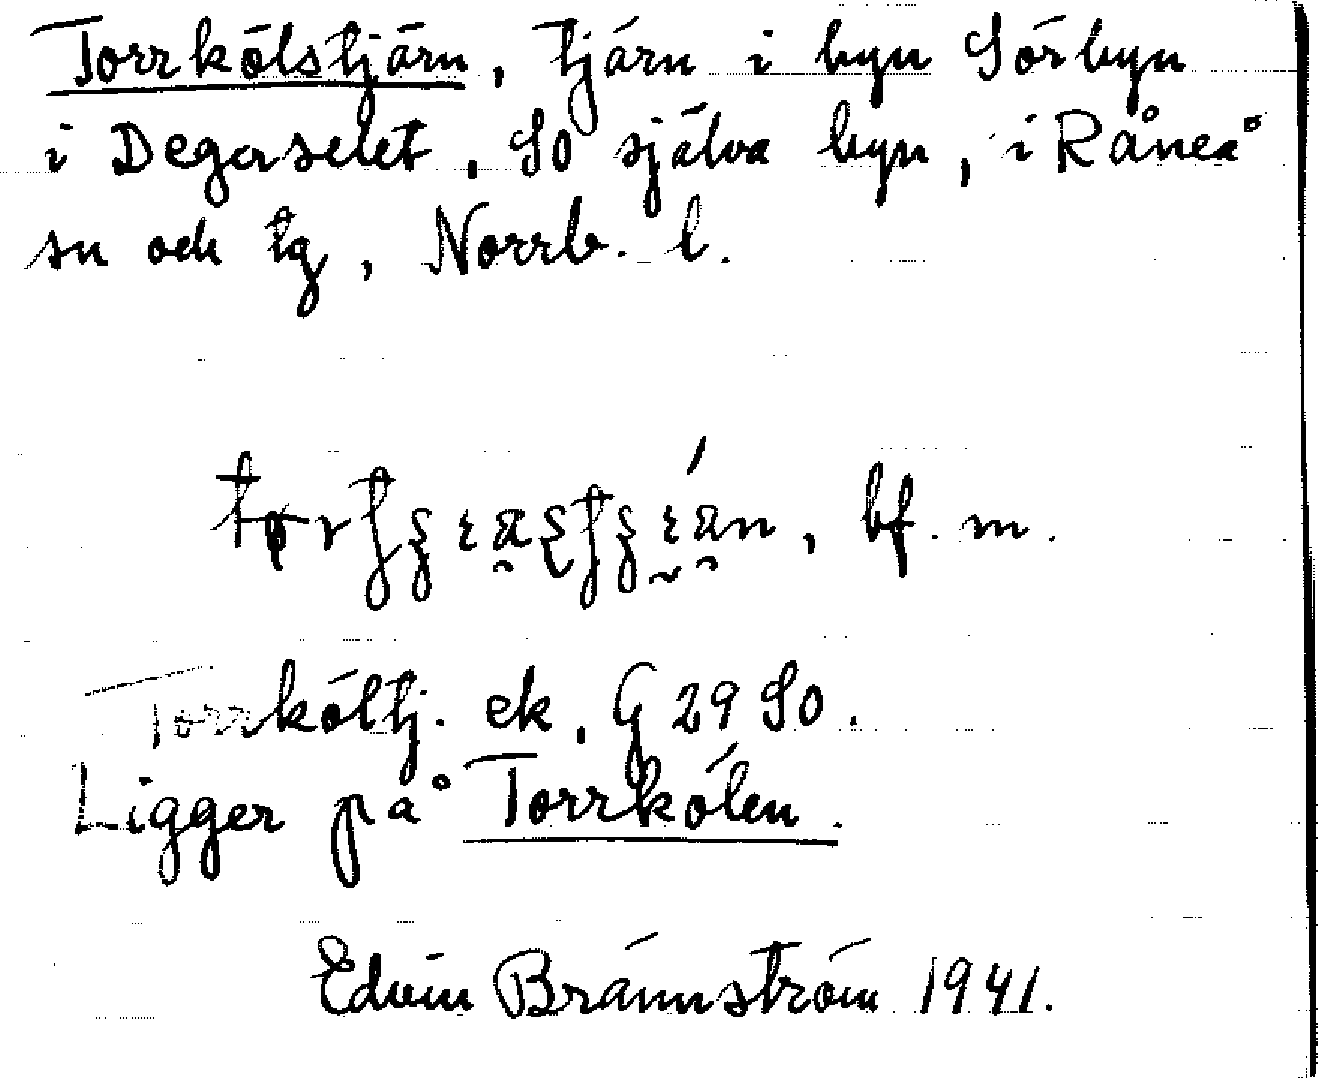 Torrkölstjärn, tjärn i byn Sörbyn
i Degerselet, SO själva byn, i Råneå
sn och tg, Norrb. l.
bf. m.
Torrköltj. ek. G 29 SO.
Ligger på Torrkölen.
Edvin Brännström 1941.